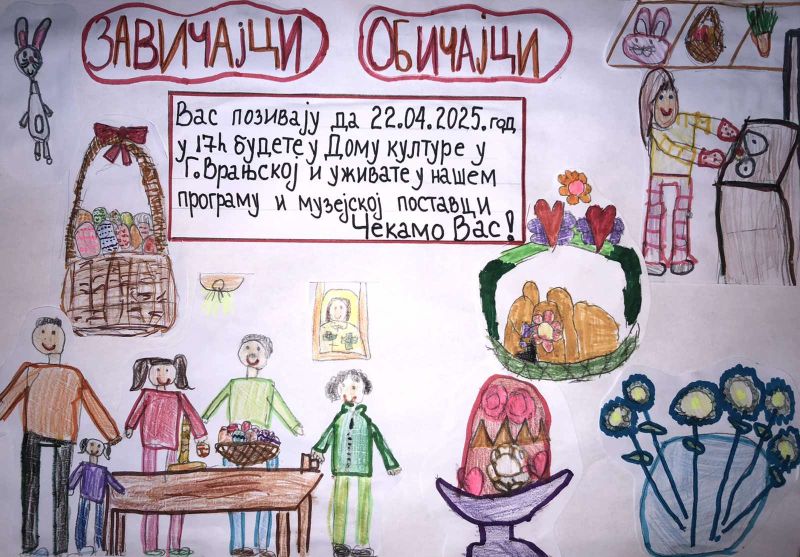 ЗАВИЧАЈЦИ ОБИЧАЈЦИ
Вас позивају да 22.04.2025. год
у 17h будете у Дому културе у
Г. Врањској и уживате у нашем
програму и музејској поставци
Чекамо Вас!